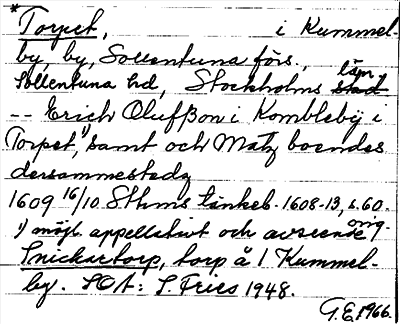 *Torpet, i Kummel-
by, by, Sollentuna förs.,
Sollentuna hd, Stockholms län
-- Erich Olufßon i Kombleby i
Torpet,¹⁾ samt och Matz boendes
dersammestedz
1609 16/10 Sthms tänkeb. 1608-13, s. 60.
1) möjl. appellativt och avseende orig.
Snickartorp, torp å 1 Kummel-
by. SOA: S. Fries 1948.
G.E. 1966.